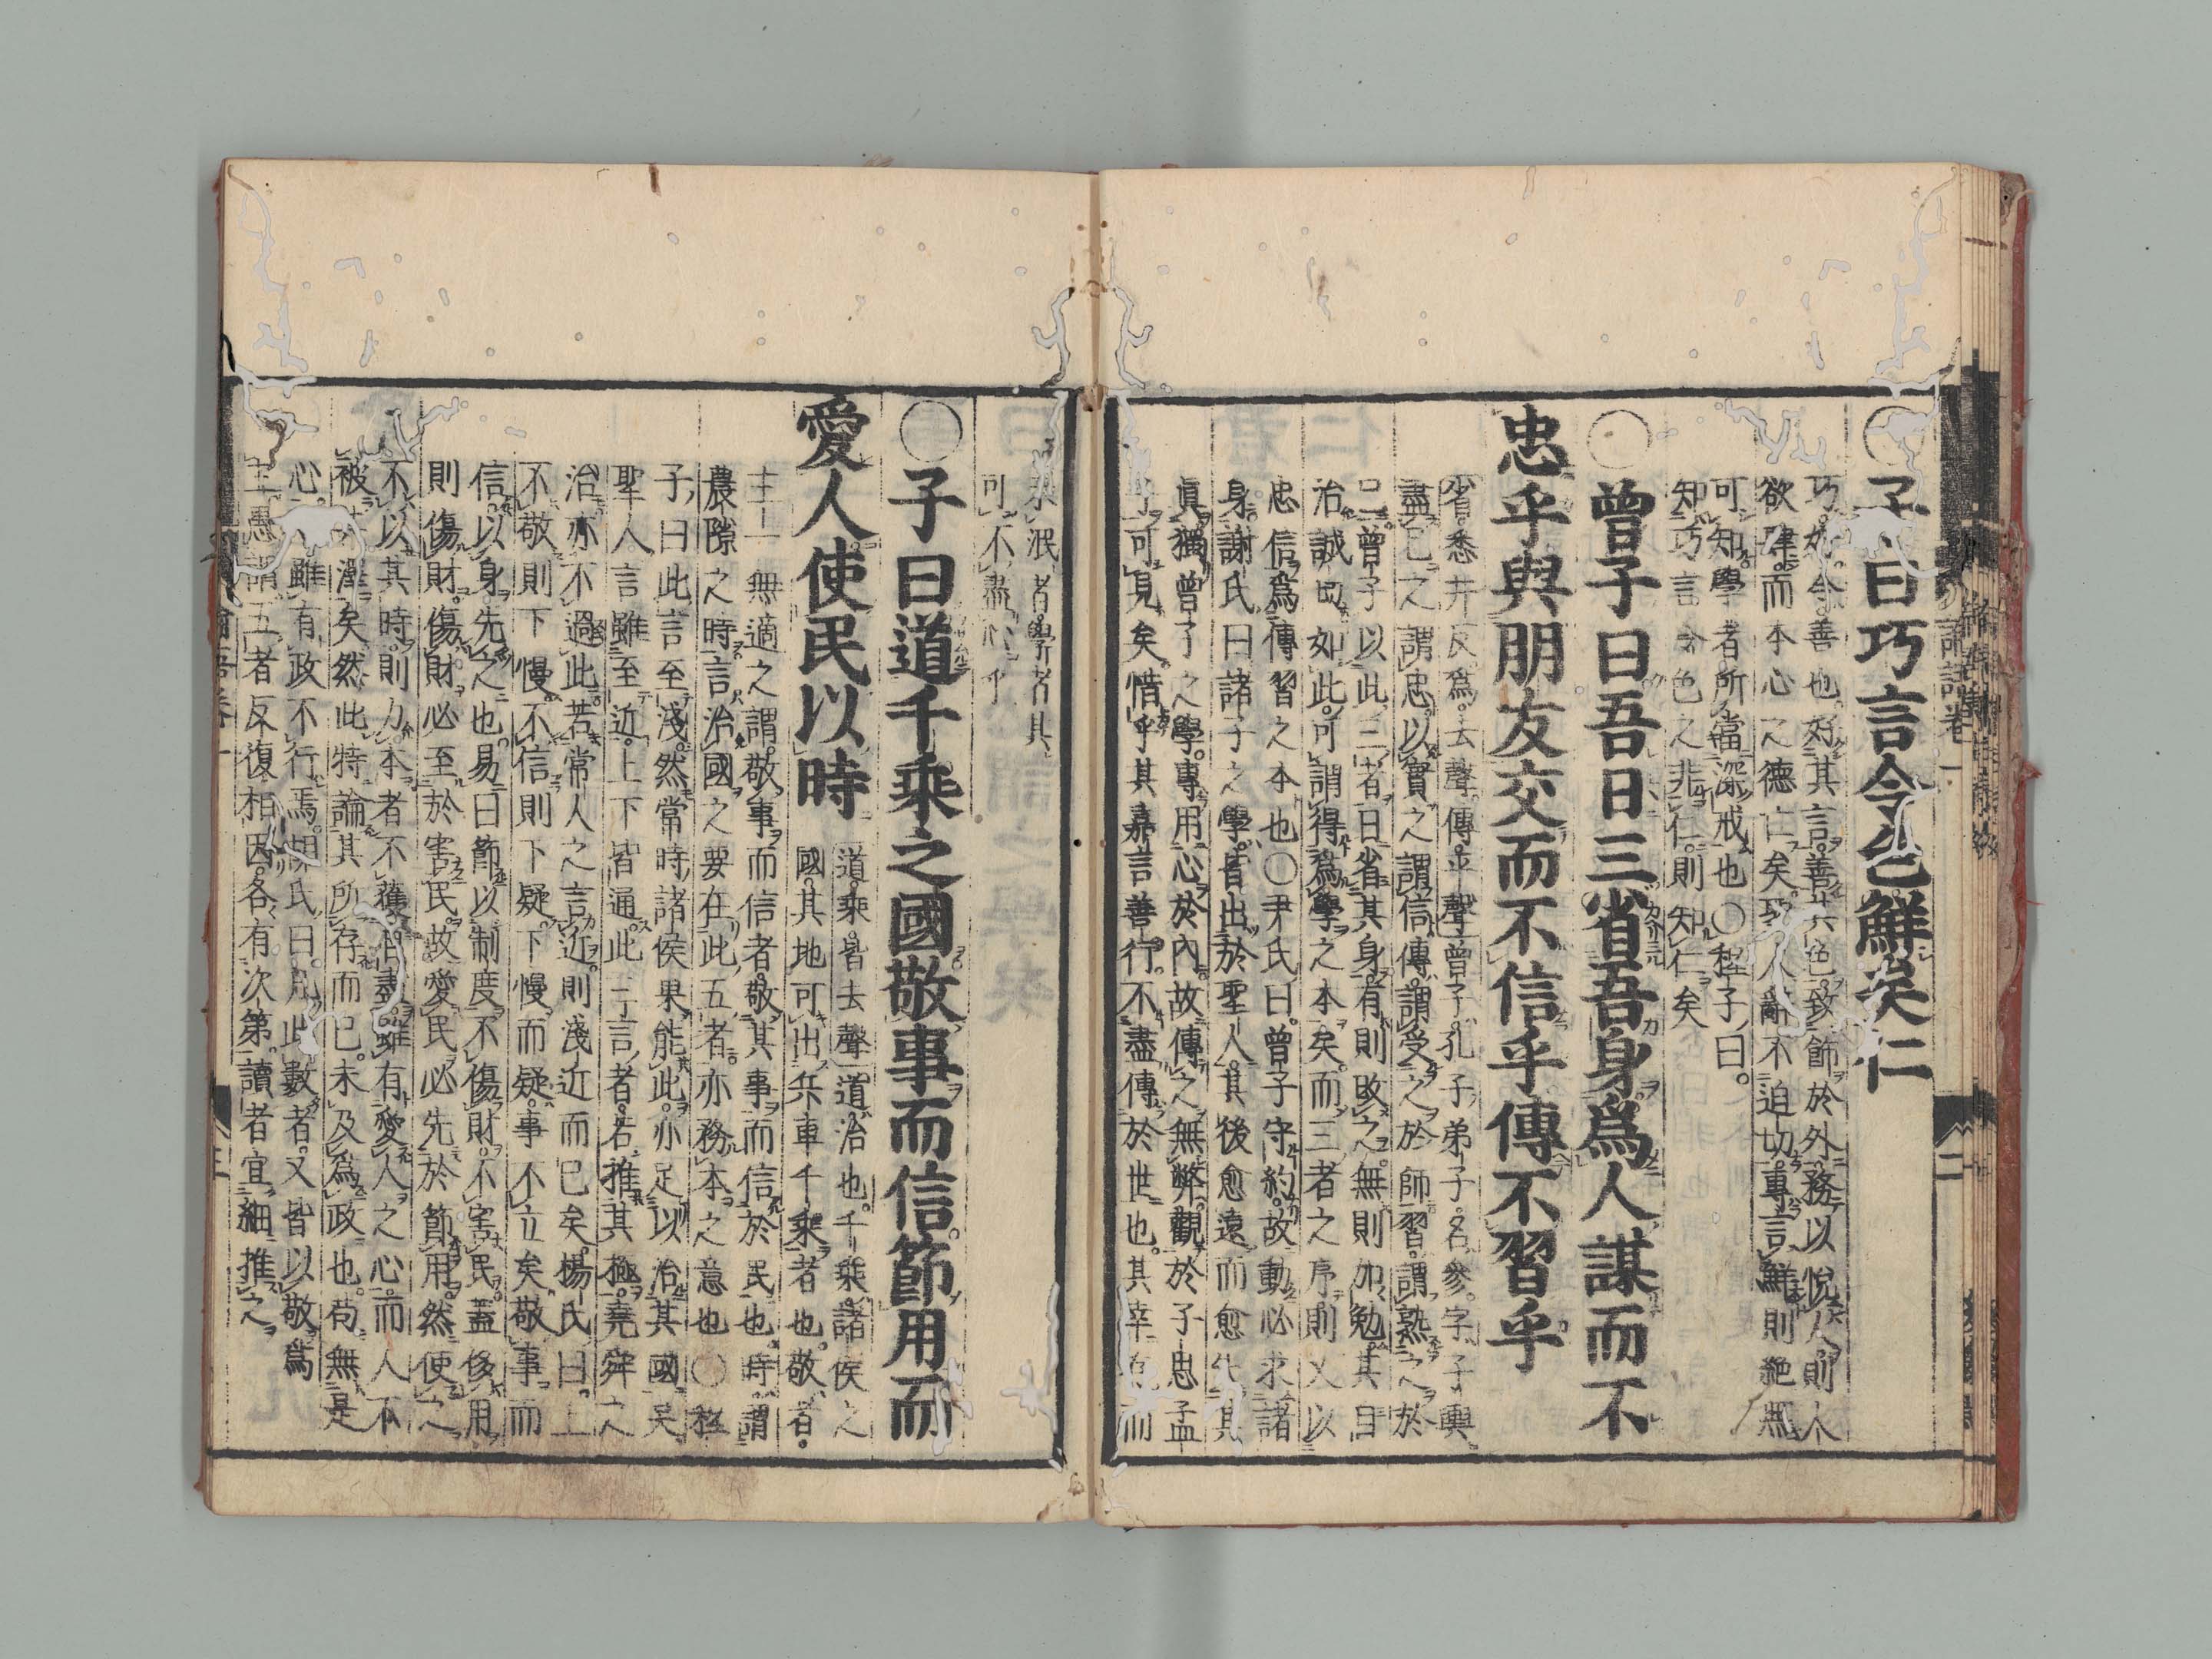 ○子曰巧言令色鮮矣仁
巧好令善也好其言善其色致飾於外務以悅人則人
欲肆而本心之德亡矣聖人辭不迫切專言鮮則絕無
可知學者所當深戒也○程子曰
知巧言令色之非仁則知仁矣
○曾子曰吾日三省吾身爲人謀而不
忠乎與朋友交而不信乎傳不習乎
省悉井反爲去聲傳平聲曾子孔子弟子名參字子輿
盡己之謂忠以實之謂信傳謂受之於師習謂熟之於
己曾子以此三者日省其身有則改之無則加勉其自
治誠切如此可謂得爲學之本矣而三者之序則又以
忠信爲傳習之本也○尹氏曰曾子守約故動必求諸
身謝氏曰諸子之學皆出於聖人其後愈遠而愈失其
眞獨曾子之學專用心於內故傳之無弊觀於子思孟
子可見矣惜乎其嘉言善行不盡傳於世也其幸存而
未泯者學者其
可不盡心乎
○子曰道千乘之國敬事而信節用而
愛人使民以時
道乘皆去聲道治也千乘諸侯之
國其地可出兵車千乘者也敬者
主一無適之謂敬事而信者敬其事而信於民也時謂
農隙之時言治國之要在此五者亦務本之意也○程
子曰此言至淺然當時諸侯果能此亦足以治其國矣
聖人言雖至近上下皆通此三言者若推其極堯舜之
治亦不過此若常人之言近則淺近而已矣楊氏曰上
不敬則下慢不信則下疑下慢而疑事不立矣敬事而
信以身先之也易曰節以制度不傷財不害民蓋侈用
則傷財傷財必至於害民故愛民必先於節用然使之
不以其時則力本者不獲自盡雖有愛人之心而人不
被其澤矣然此特論其所存而已未及爲政也苟無是
心雖有政不行焉胡氏曰凡此數者又皆以敬爲
主愚謂五者反復相因各有次第讀者宜細推之